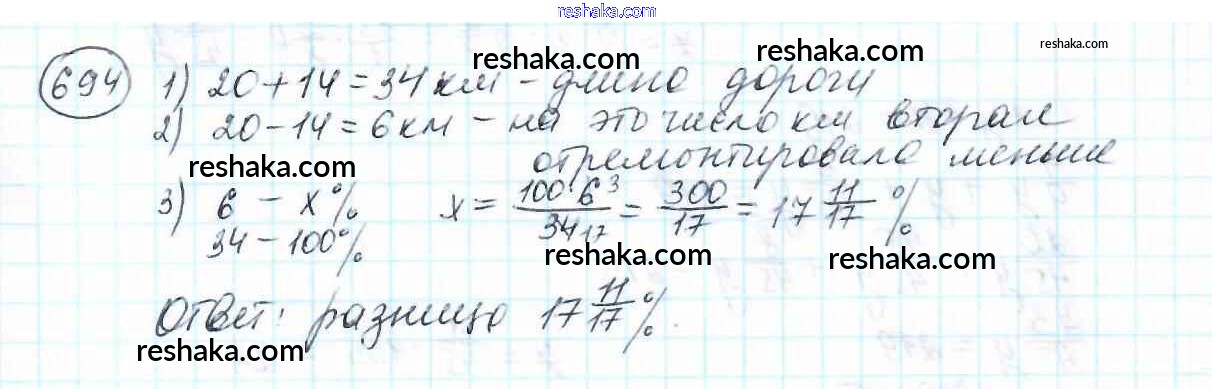 reshaka.com
reshaka.com reshaka.com reshaka.com
694 1) 20+14=34 км – длина дороги
2) 20-14=6 км – на это число км вторая
reshaka.com отремонтировала меньше
3) 6 – x% x = 100·6³/34₁₇ = 300/17 = 17 11/17 %
34 – 100%
reshaka.com reshaka.com
Ответ: разница 17 11/17 %.
reshaka.com